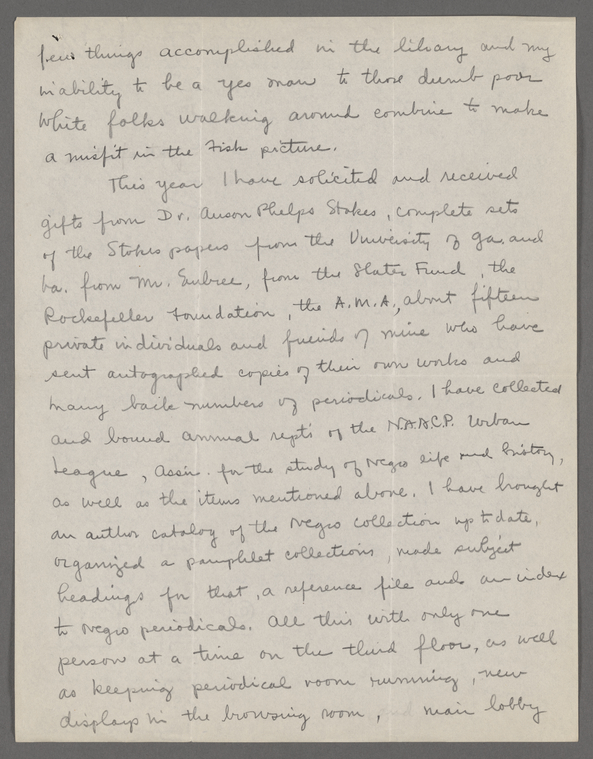 few things accomplished in the library and my
inability to be a yes man to those dumb poor
white folks walking around combine to make
a misfit in the Fisk picture.
This year I have solicited and received
gifts from Dr. Anson Phelps Stokes, complete sets
of the Stokes papers from the University of Ga. and
Va. from Mr. Embree, from the Slater Fund, the
Rockefeller Foundation, the A.M.A., about fifteen
private individuals and friends of mine who have
sent autographed copies of their own works and
many back numbers of periodicals. I have collected
and bound annual repts of the N.A.A.C.P. Urban
League, Assn. for the study of Negro life and history,
as well as the items mentioned above. I have brought
an author catalog of the Negro collection up to date,
organized a pamphlet collections, made subject
headings for that, a reference file and an index
to Negro periodicals. All this with only one
person at a time on the third floor, as well
as keeping periodical room running, new
displays in the browsing room, main lobby